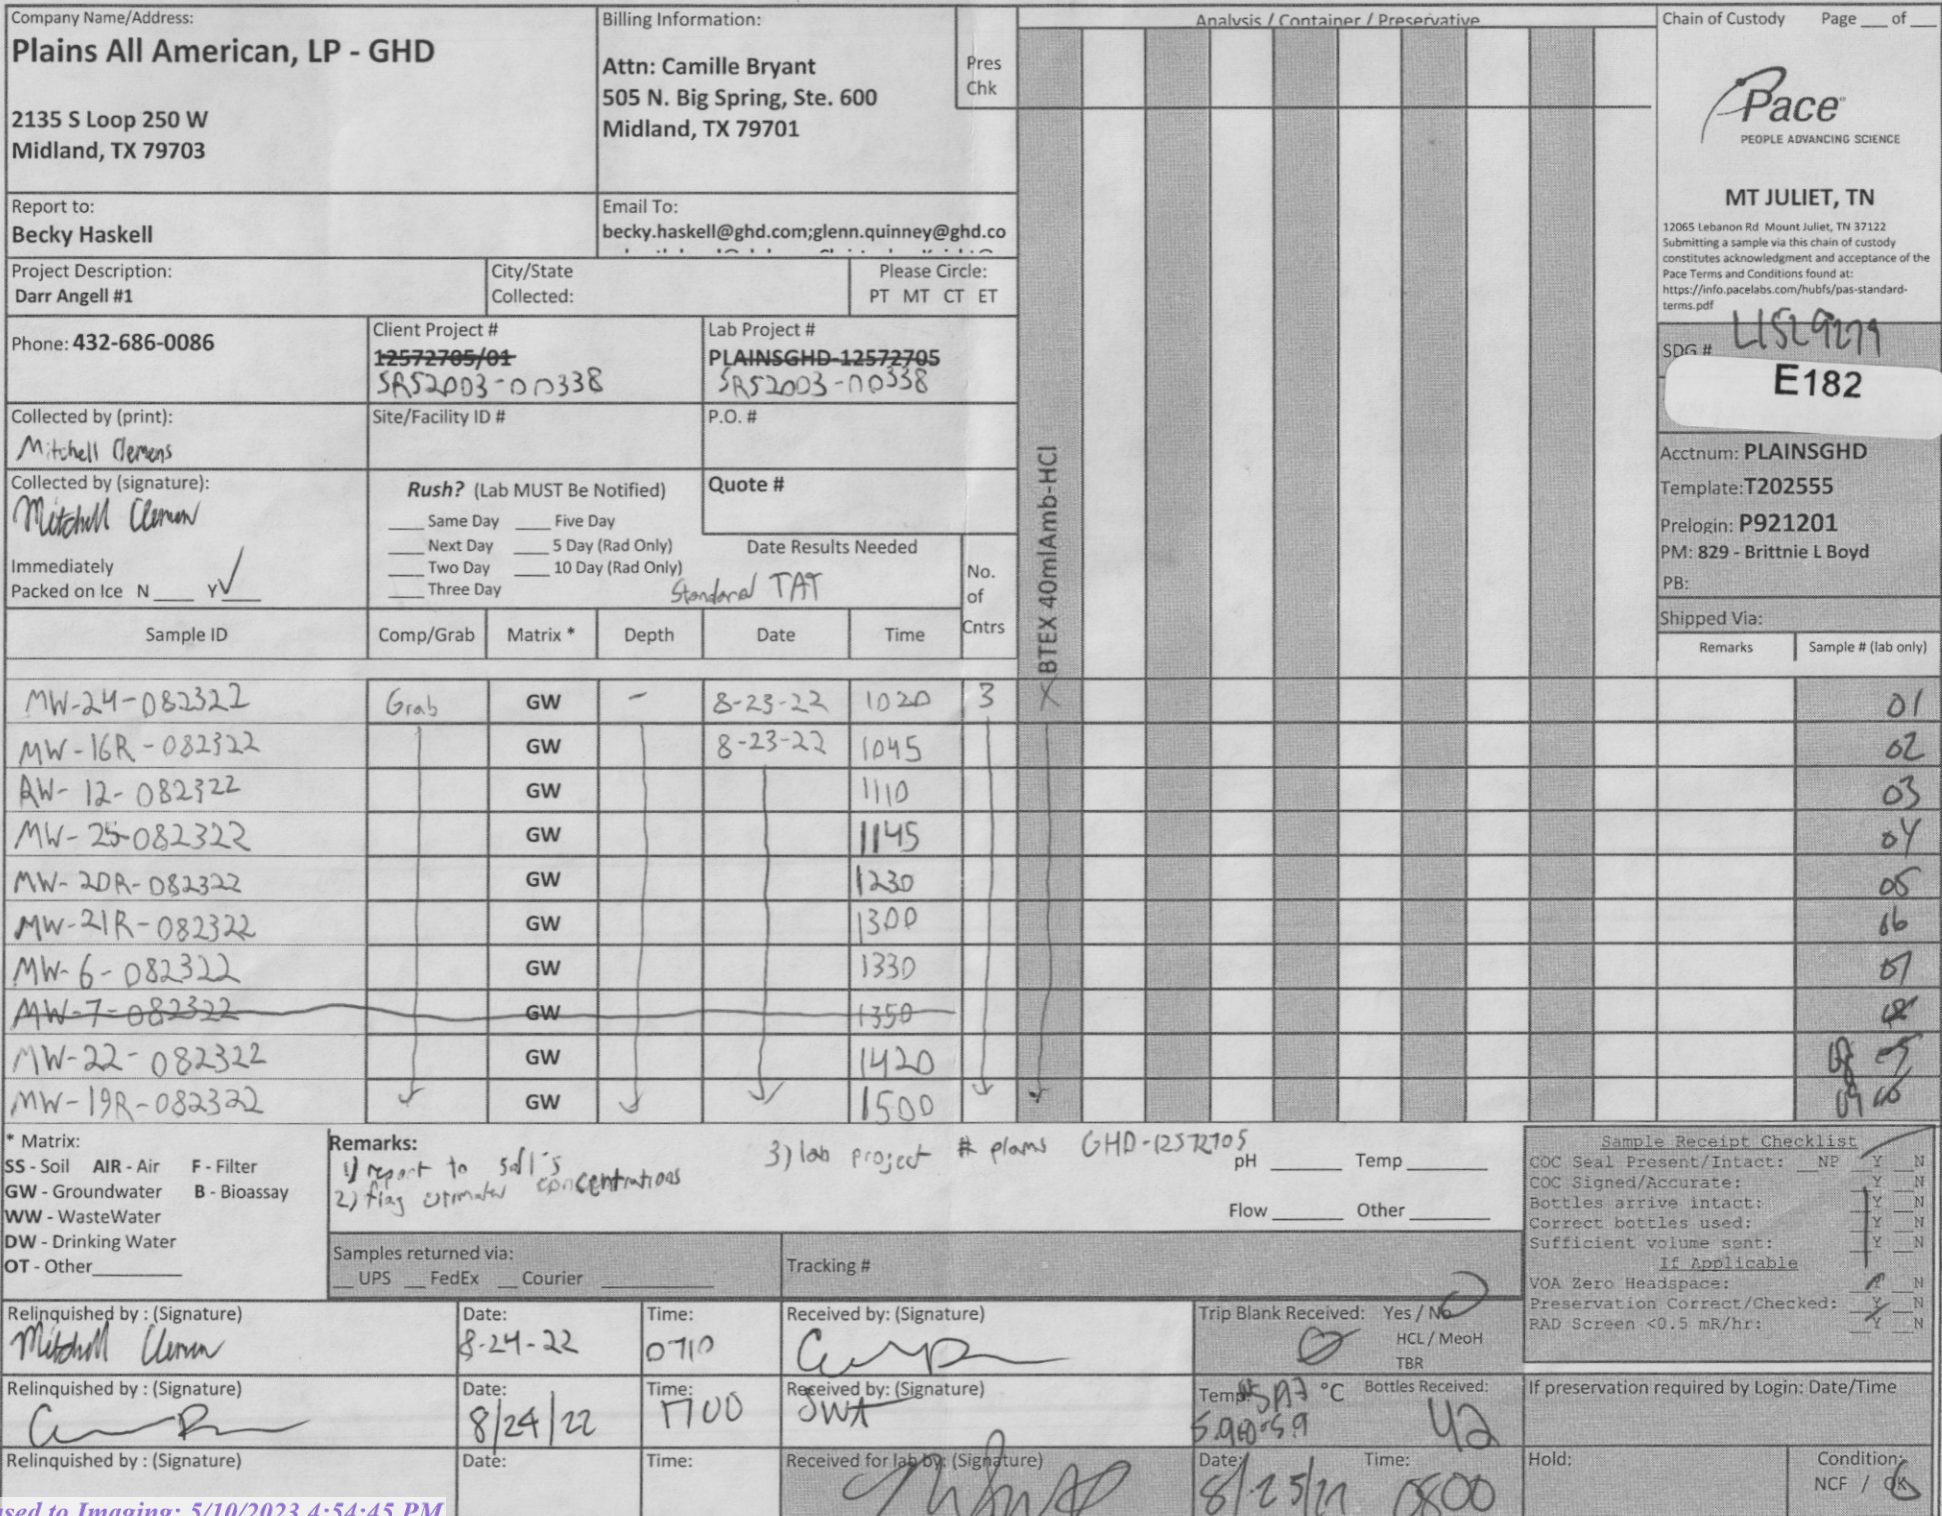 Company Name/Address:
Plains All American, LP - GHD
2135 S Loop 250 W
Midland, TX 79703
Billing Information:
Attn: Camille Bryant
505 N. Big Spring, Ste. 600
Midland, TX 79701
Pres
Chk
Analysis / Container / Preservative
Chain of Custody Page ___ of ___
Pace
PEOPLE ADVANCING SCIENCE
MT JULIET, TN
12065 Lebanon Rd Mount Juliet, TN 37122
Submitting a sample via this chain of custody
constitutes acknowledgment and acceptance of the
Pace Terms and Conditions found at:
https://info.pacelabs.com/hubfs/pas-standard-
terms.pdf
Report to:
Becky Haskell
Email To:
becky.haskell@ghd.com;glenn.quinney@ghd.co
Project Description:
Darr Angell #1
City/State
Collected:
Please Circle:
PT MT CT ET
Phone: 432-686-0086
Client Project #
12572705/01
SRS2003-00338
Lab Project #
PLAINSGHD-12572705
SRS2003-00338
SDG #
E182
Collected by (print):
Mitchell Clemens
Site/Facility ID #
P.O. #
Acctnum: PLAINSGHD
Template: T202555
Prelogin: P921201
PM: 829 - Brittnie L Boyd
PB:
Shipped Via:
Collected by (signature):
Mitchell Clemens
Immediately
Packed on Ice N ___ Y ✓
Rush? (Lab MUST Be Notified)
___ Same Day ___ Five Day
___ Next Day ___ 5 Day (Rad Only)
___ Two Day ___ 10 Day (Rad Only)
___ Three Day
Quote #
Date Results Needed
Standard TAT
No.
of
Cntrs
BTEX 40mlAmb-HCl
Sample ID Comp/Grab Matrix * Depth Date Time Remarks Sample # (lab only)
MW-24-082322 Grab GW - 8-23-22 1020 3 X 01
MW-16R-082322 GW 8-23-22 1045 02
RW-12-082322 GW 1110 03
MW-25-082322 GW 1145 04
MW-20R-082322 GW 1230 05
MW-21R-082322 GW 1300 06
MW-6-082322 GW 1330 07
MW-7-082322 GW 1350
MW-22-082322 GW 1420 08
MW-19R-082322 GW 1500 09
* Matrix:
SS - Soil AIR - Air F - Filter
GW - Groundwater B - Bioassay
WW - WasteWater
DW - Drinking Water
OT - Other
Remarks:
1) report to
2) flag estimated concentrations
3) lab project # plains GHD-12572705
pH ___ Temp ___
Flow ___ Other ___
Samples returned via:
__ UPS __ FedEx __ Courier
Tracking #
Sample Receipt Checklist
COC Seal Present/Intact: __NP __Y __N
COC Signed/Accurate: __Y __N
Bottles arrive intact: __Y __N
Correct bottles used: __Y __N
Sufficient volume sent: __Y __N
If Applicable
VOA Zero Headspace: __Y __N
Preservation Correct/Checked: __Y __N
RAD Screen <0.5 mR/hr: __Y __N
Relinquished by : (Signature)
Mitchell Clemens
Date:
8-24-22
Time:
0710
Received by: (Signature)
Trip Blank Received: Yes / No
HCL / MeoH
TBR
Relinquished by : (Signature)
Date:
8/24/22
Time:
1700
Received by: (Signature)
Temp: °C
5.9+0=5.9
Bottles Received:
42
If preservation required by Login: Date/Time
Relinquished by : (Signature)
Date:
Time:
Received for lab by: (Signature)
Date:
8/25/22
Time:
0800
Hold:
Condition:
NCF / OK
used to Imaging: 5/10/2023 4:54:45 PM